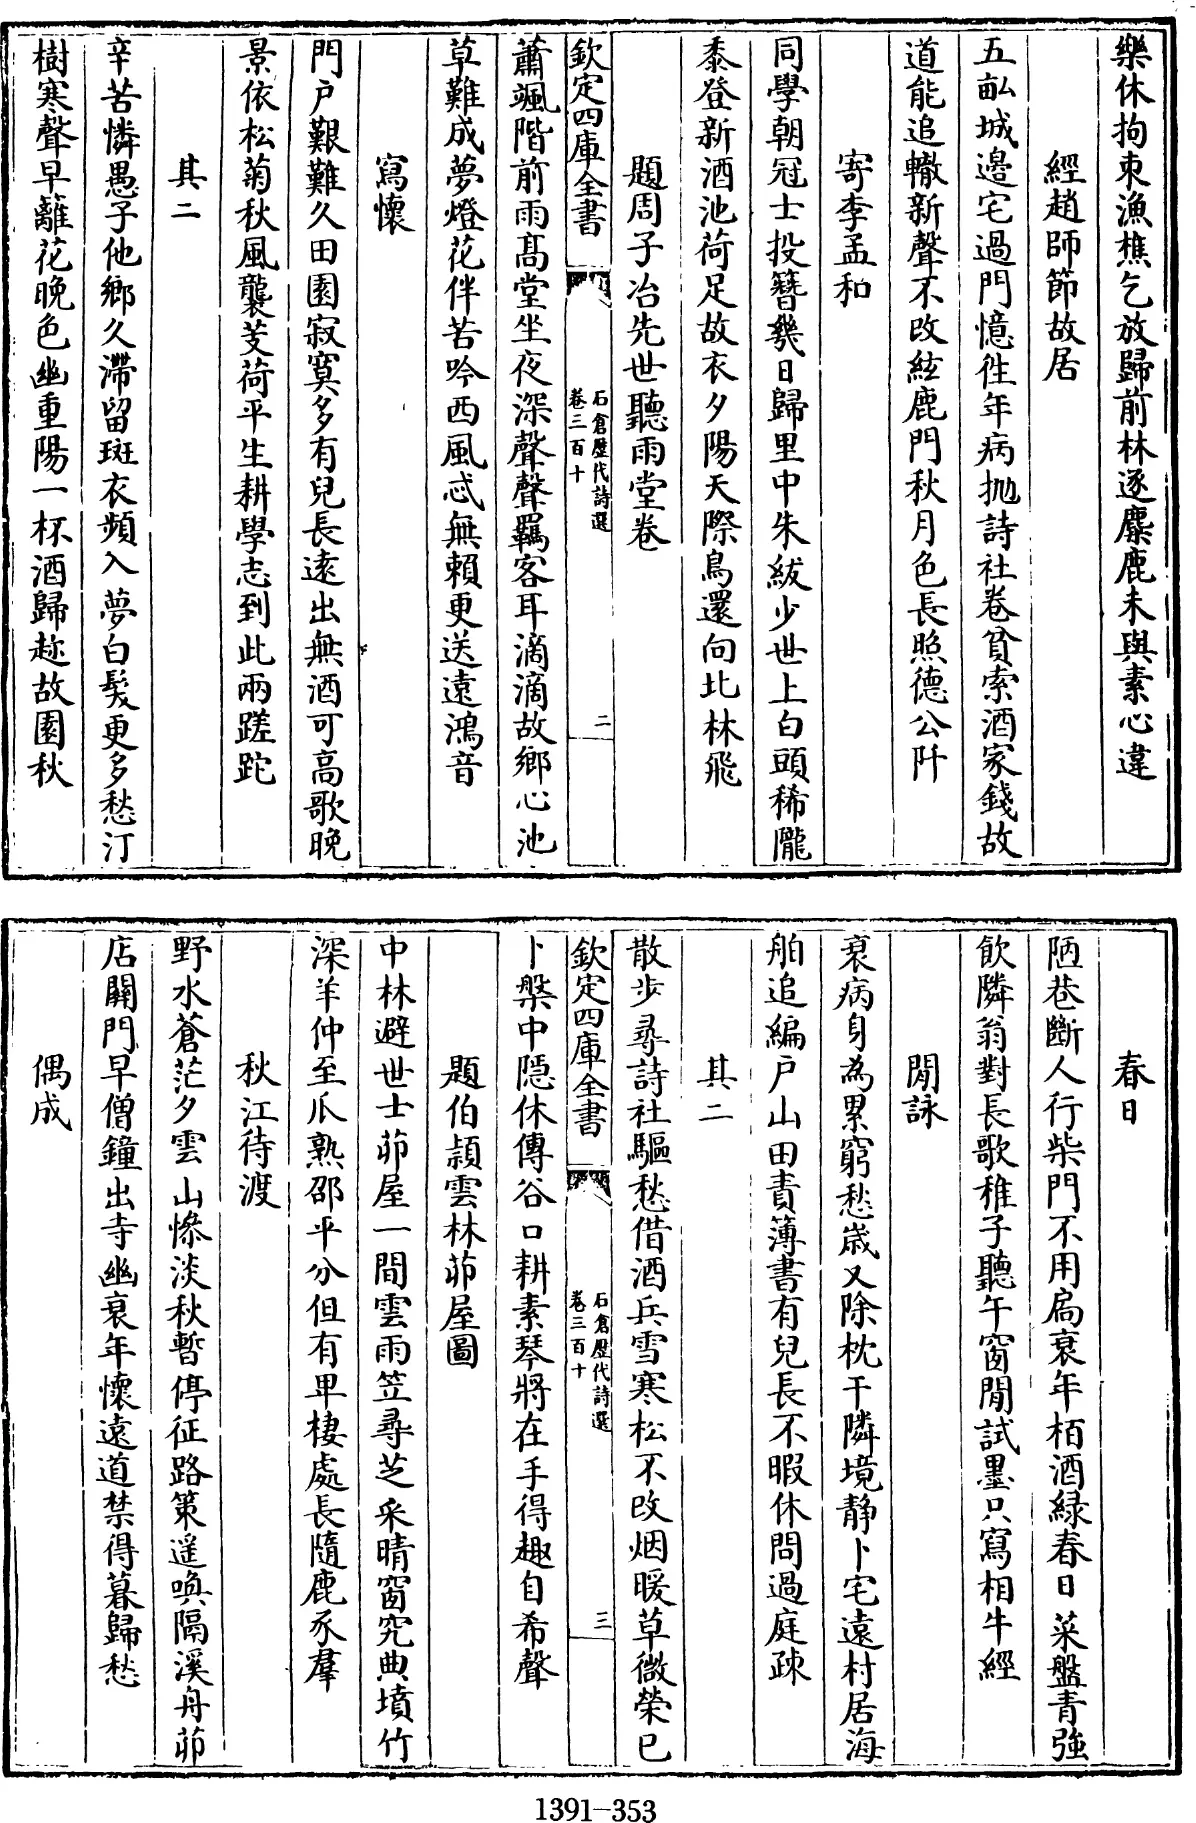 樂休拘束漁樵乞放歸前林逐麋鹿未與素心違
經趙師節故居
五畝城邊宅過門憶徃年病抛詩社卷貧索酒家錢故
道能追轍新聲不改絃鹿門秋月色長照德公阡
寄李孟和
同學朝冠士投簪幾日歸里中朱紱少世上白頭稀隴
黍登新酒池荷足故衣夕陽天際鳥還向北林飛
題周子冶先世聽雨堂卷
欽定四庫全書
石倉歷代詩選
卷三百十
二
蕭颯階前雨髙堂坐夜深聲聲羈客耳滴滴故鄉心池
草難成夢燈花伴苦吟西風忒無賴更送遠鴻音
寫懷
門户艱難久田園寂寞多有兒長逺出無酒可高歌晚
景依松菊秋風襲芰荷平生耕學志到此兩蹉跎
其二
辛苦憐愚子他鄉久滯留斑衣頻入夢白髮更多愁汀
樹寒聲早籬花晚色幽重陽一杯酒歸趂故園秋
春日
陋巷斷人行柴門不用扃衰年栢酒緑春日菜盤青強
飲隣翁對長歌稚子聽午窗閒試墨只寫相牛經
閒詠
衰病身為累窮愁歳又除枕干隣境靜卜宅遠村居海
舶追編户山田責簿書有兒長不暇休問過庭疎
其二
散步尋詩社驅愁借酒兵雪寒松不改烟暖草微榮已
欽定四庫全書
石倉歷代詩選
卷三百十
三
卜槃中隠休傳谷口耕素琴將在手得趣自希聲
題伯頴雲林茆屋圖
中林避世士茆屋一間雲雨笠尋芝采晴窗究典墳竹
深羊仲至瓜熟邵平分但有卑棲處長隨鹿豕羣
秋江待渡
野水蒼茫夕雲山慘淡秋暫停征路策遥喚隔溪舟茆
店關門早僧鐘出寺幽衰年懷逺道禁得暮歸愁
偶成
1391-353